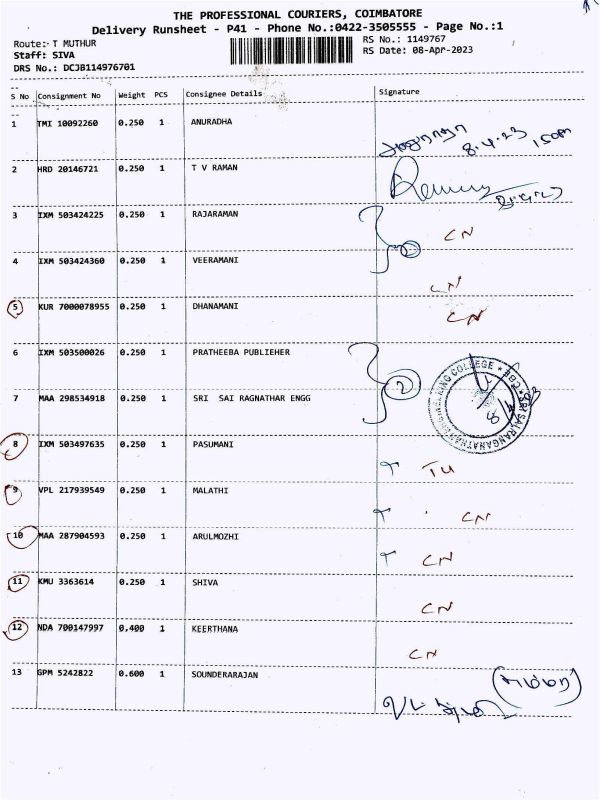 THE PROFESSIONAL COURIERS, COIMBATORE
Delivery Runsheet - P41 - Phone No.:0422-3505555 - Page No.:1
Route:- T MUTHUR
RS No.: 1149767
Staff: SIVA
RS Date: 08-Apr-2023
DRS No.: DCJB114976701
S No Consignment No Weight PCS Consignee Details Signature
1 TMI 10092260 0.250 1 ANURADHA
8.4.23
2 HRD 20146721 0.250 1 T V RAMAN
3 IXM 503424225 0.250 1 RAJARAMAN
CN
4 IXM 503424360 0.250 1 VEERAMANI
CN
5 KUR 7000078955 0.250 1 DHANAMANI CN
6 IXM 503500026 0.250 1 PRATHEEBA PUBLIEHER
2
7 MAA 298534918 0.250 1 SRI SAI RAGNATHAR ENGG
8 IXM 503497635 0.250 1 PASUMANI
9 VPL 217939549 0.250 1 MALATHI
CN
10 MAA 287904593 0.250 1 ARULMOZHI
CN
11 KMU 3363614 0.250 1 SHIVA
CN
12 NDA 700147997 0.400 1 KEERTHANA
CN
13 GPM 5242822 0.600 1 SOUNDERARAJAN